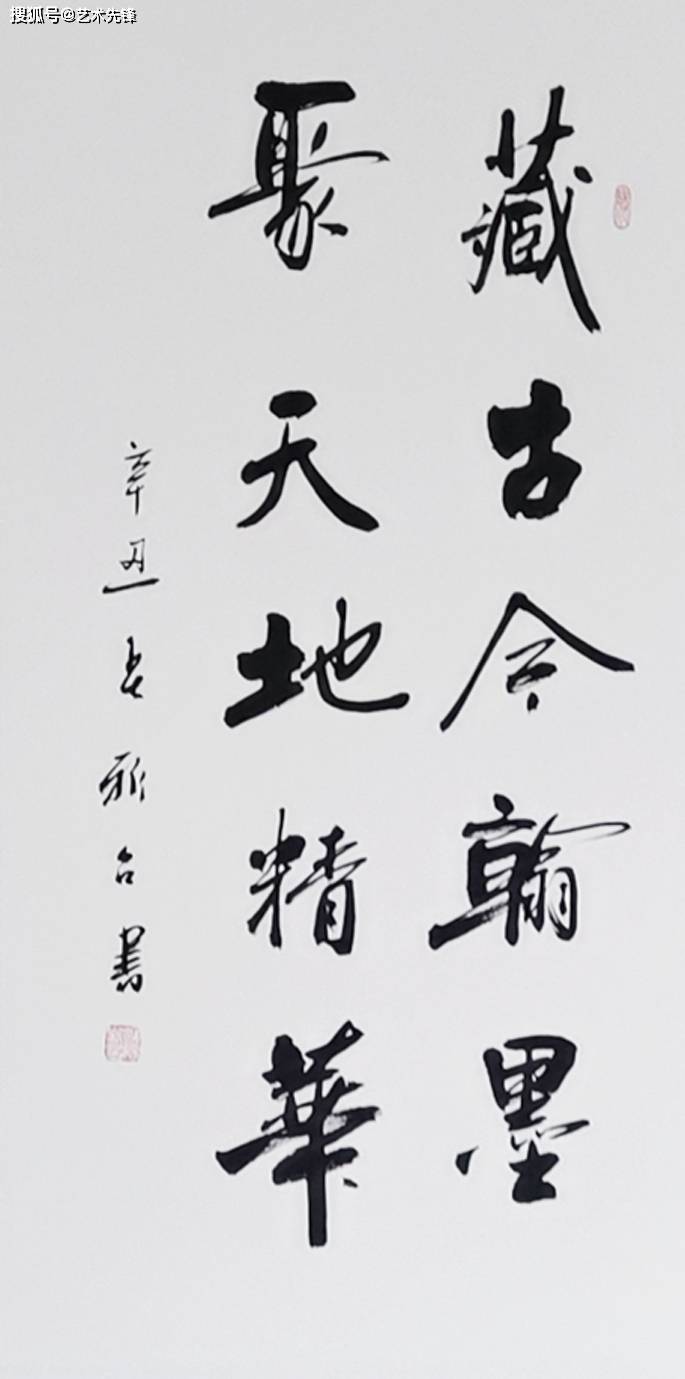 搜狐号@艺术先锋
藏古今翰墨
聚天地精華
辛丑書